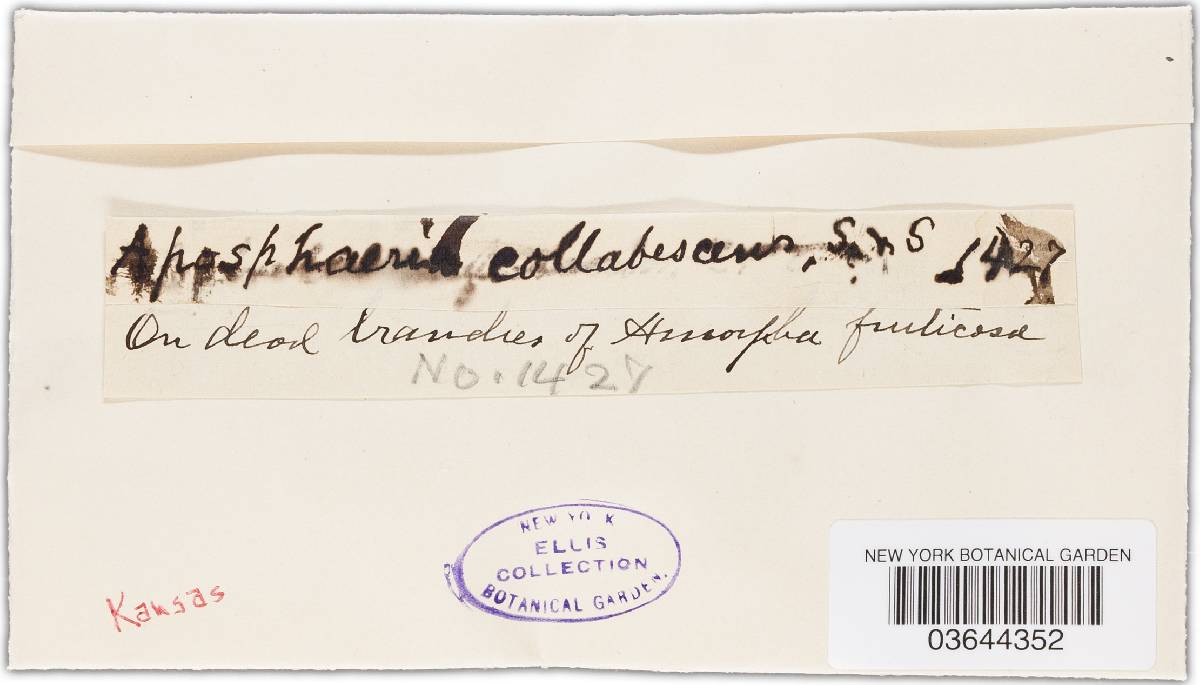 Aposphaeria collabescens, S, & S 1427
On dead branches of Amorpha fruticosa
No. 1427
NEW YO K
ELLIS
COLLECTION
BOTANICAL GARDEN.
Kansas
NEW YORK BOTANICAL GARDEN
03644352